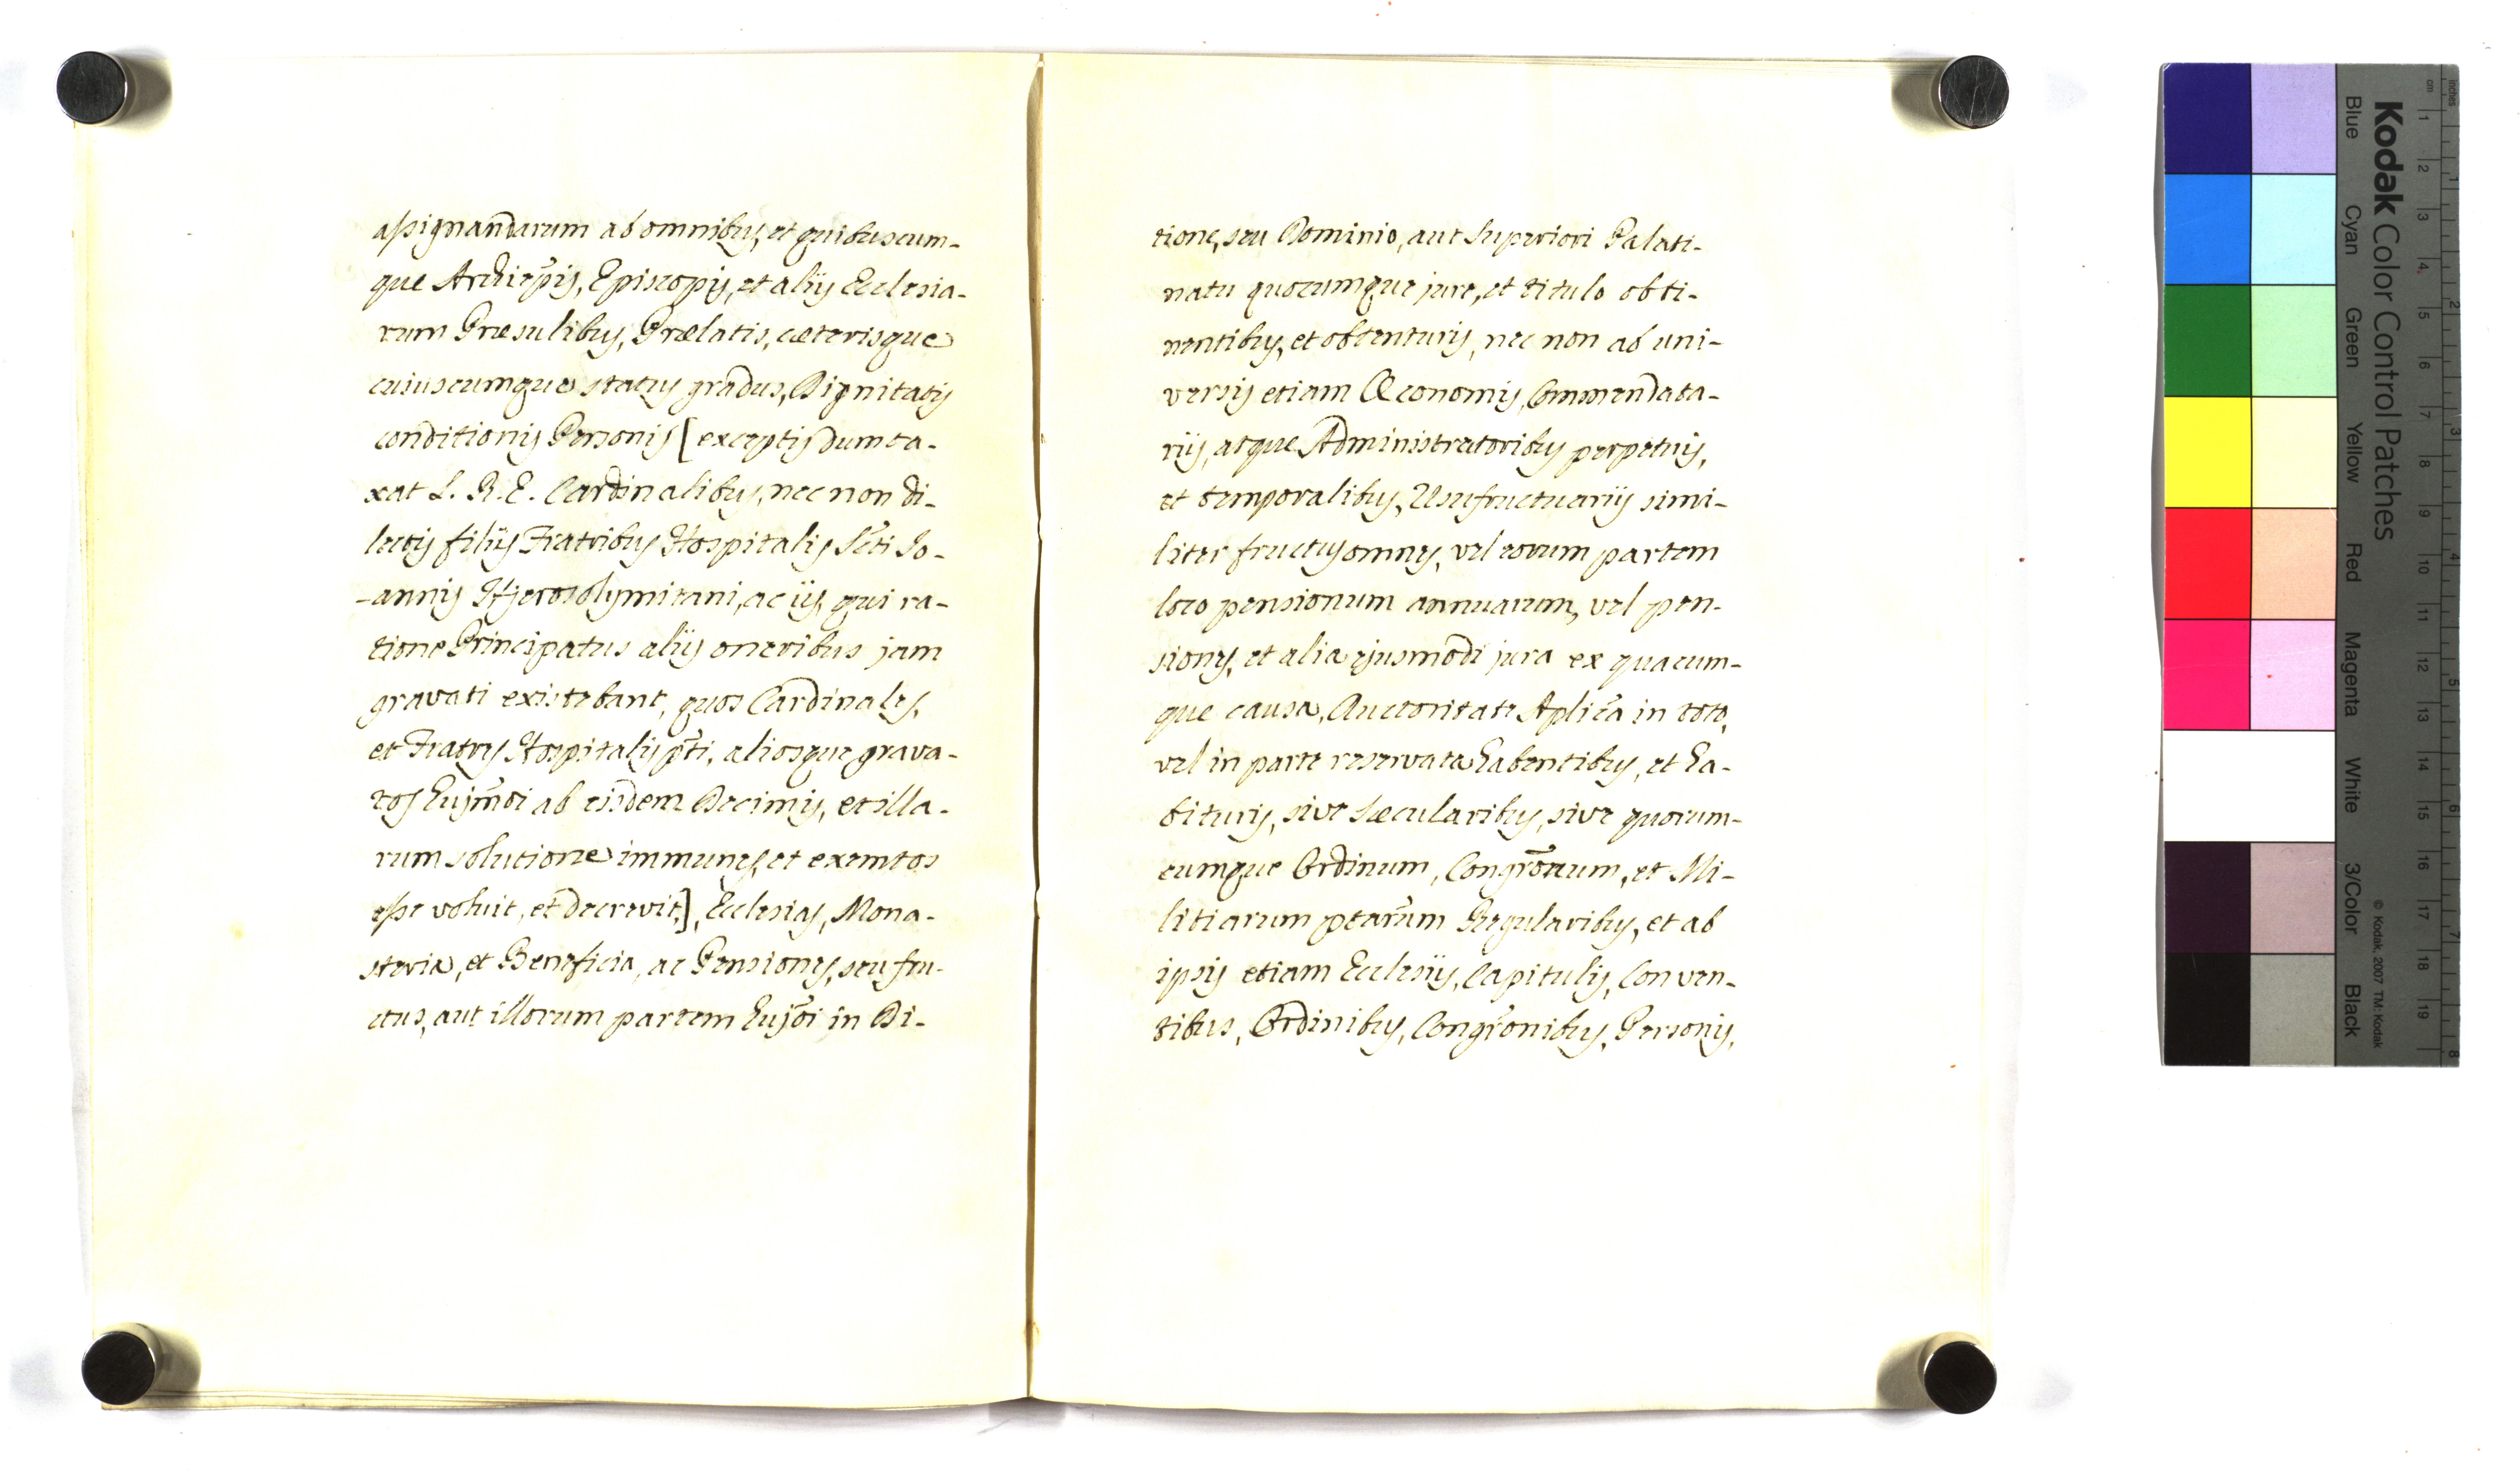 assignandarum ab omnibus, et quibuscum-
que Archiep̃is, Episcopis, et aliis Ecclesia-
rum Præsulibus, Prælatis, cæterisque
cuiuscumque status gradus, Dignitatis
conditionis Personis [exceptis dumta-
xat S. R. E. Cardinalibus, nec non di-
lectis filiis Fratribus Hospitalis S̃cti Jo-
-annis Hjerosolymitani, ac iis, qui ra-
tione Principatus aliis oneribus jam
gravati existebant, quos Cardinales,
et Fratres Hospitalis p̃ti, aliosque grava-
tos hujm̃di ab eisdem Decimis, et illa-
rum solutione immunes, et exemtos
esse voluit, et decrevit], Ecclesias, Mona-
steria, et Beneficia, ac Pensiones, seu fru-
ctus, aut illorum partem huj̃di in Di-
tione, seu Dominio, aut Superiori Palati-
natu quocumque jure, et titulo obti-
nentibus, et obtenturis, nec non ab uni-
versis etiam Œconomis, Commendata-
riis, atque Administratoribus perpetuis,
et temporalibus, Usufructuariis simi-
liter fructus omnes, vel eorum partem
loco pensionum annuarum, vel pen-
siones, et alia ejusmodi jura ex quacum-
que causa, Auctoritate Aplic̃a in toto,
vel in parte reservata habentibus, et ha-
bituris, sive Sæcularibus, sive quorum-
cumque Ordinum, Congr̃onum, et Mi-
litiarum p̃tarum Regularibus, et ab
ipsis etiam Ecclesiis, Capitulis, Conven-
tibus, Ordinibus, Congr̃onibus, Personis,
Kodak Color Control Patches
Blue Cyan Green Yellow Red Magenta White 3/Color Black
© Kodak, 2007 TM: Kodak
inches 1 2 3 4 5 6 7 8
cm 1 2 3 4 5 6 7 8 9 10 11 12 13 14 15 16 17 18 19